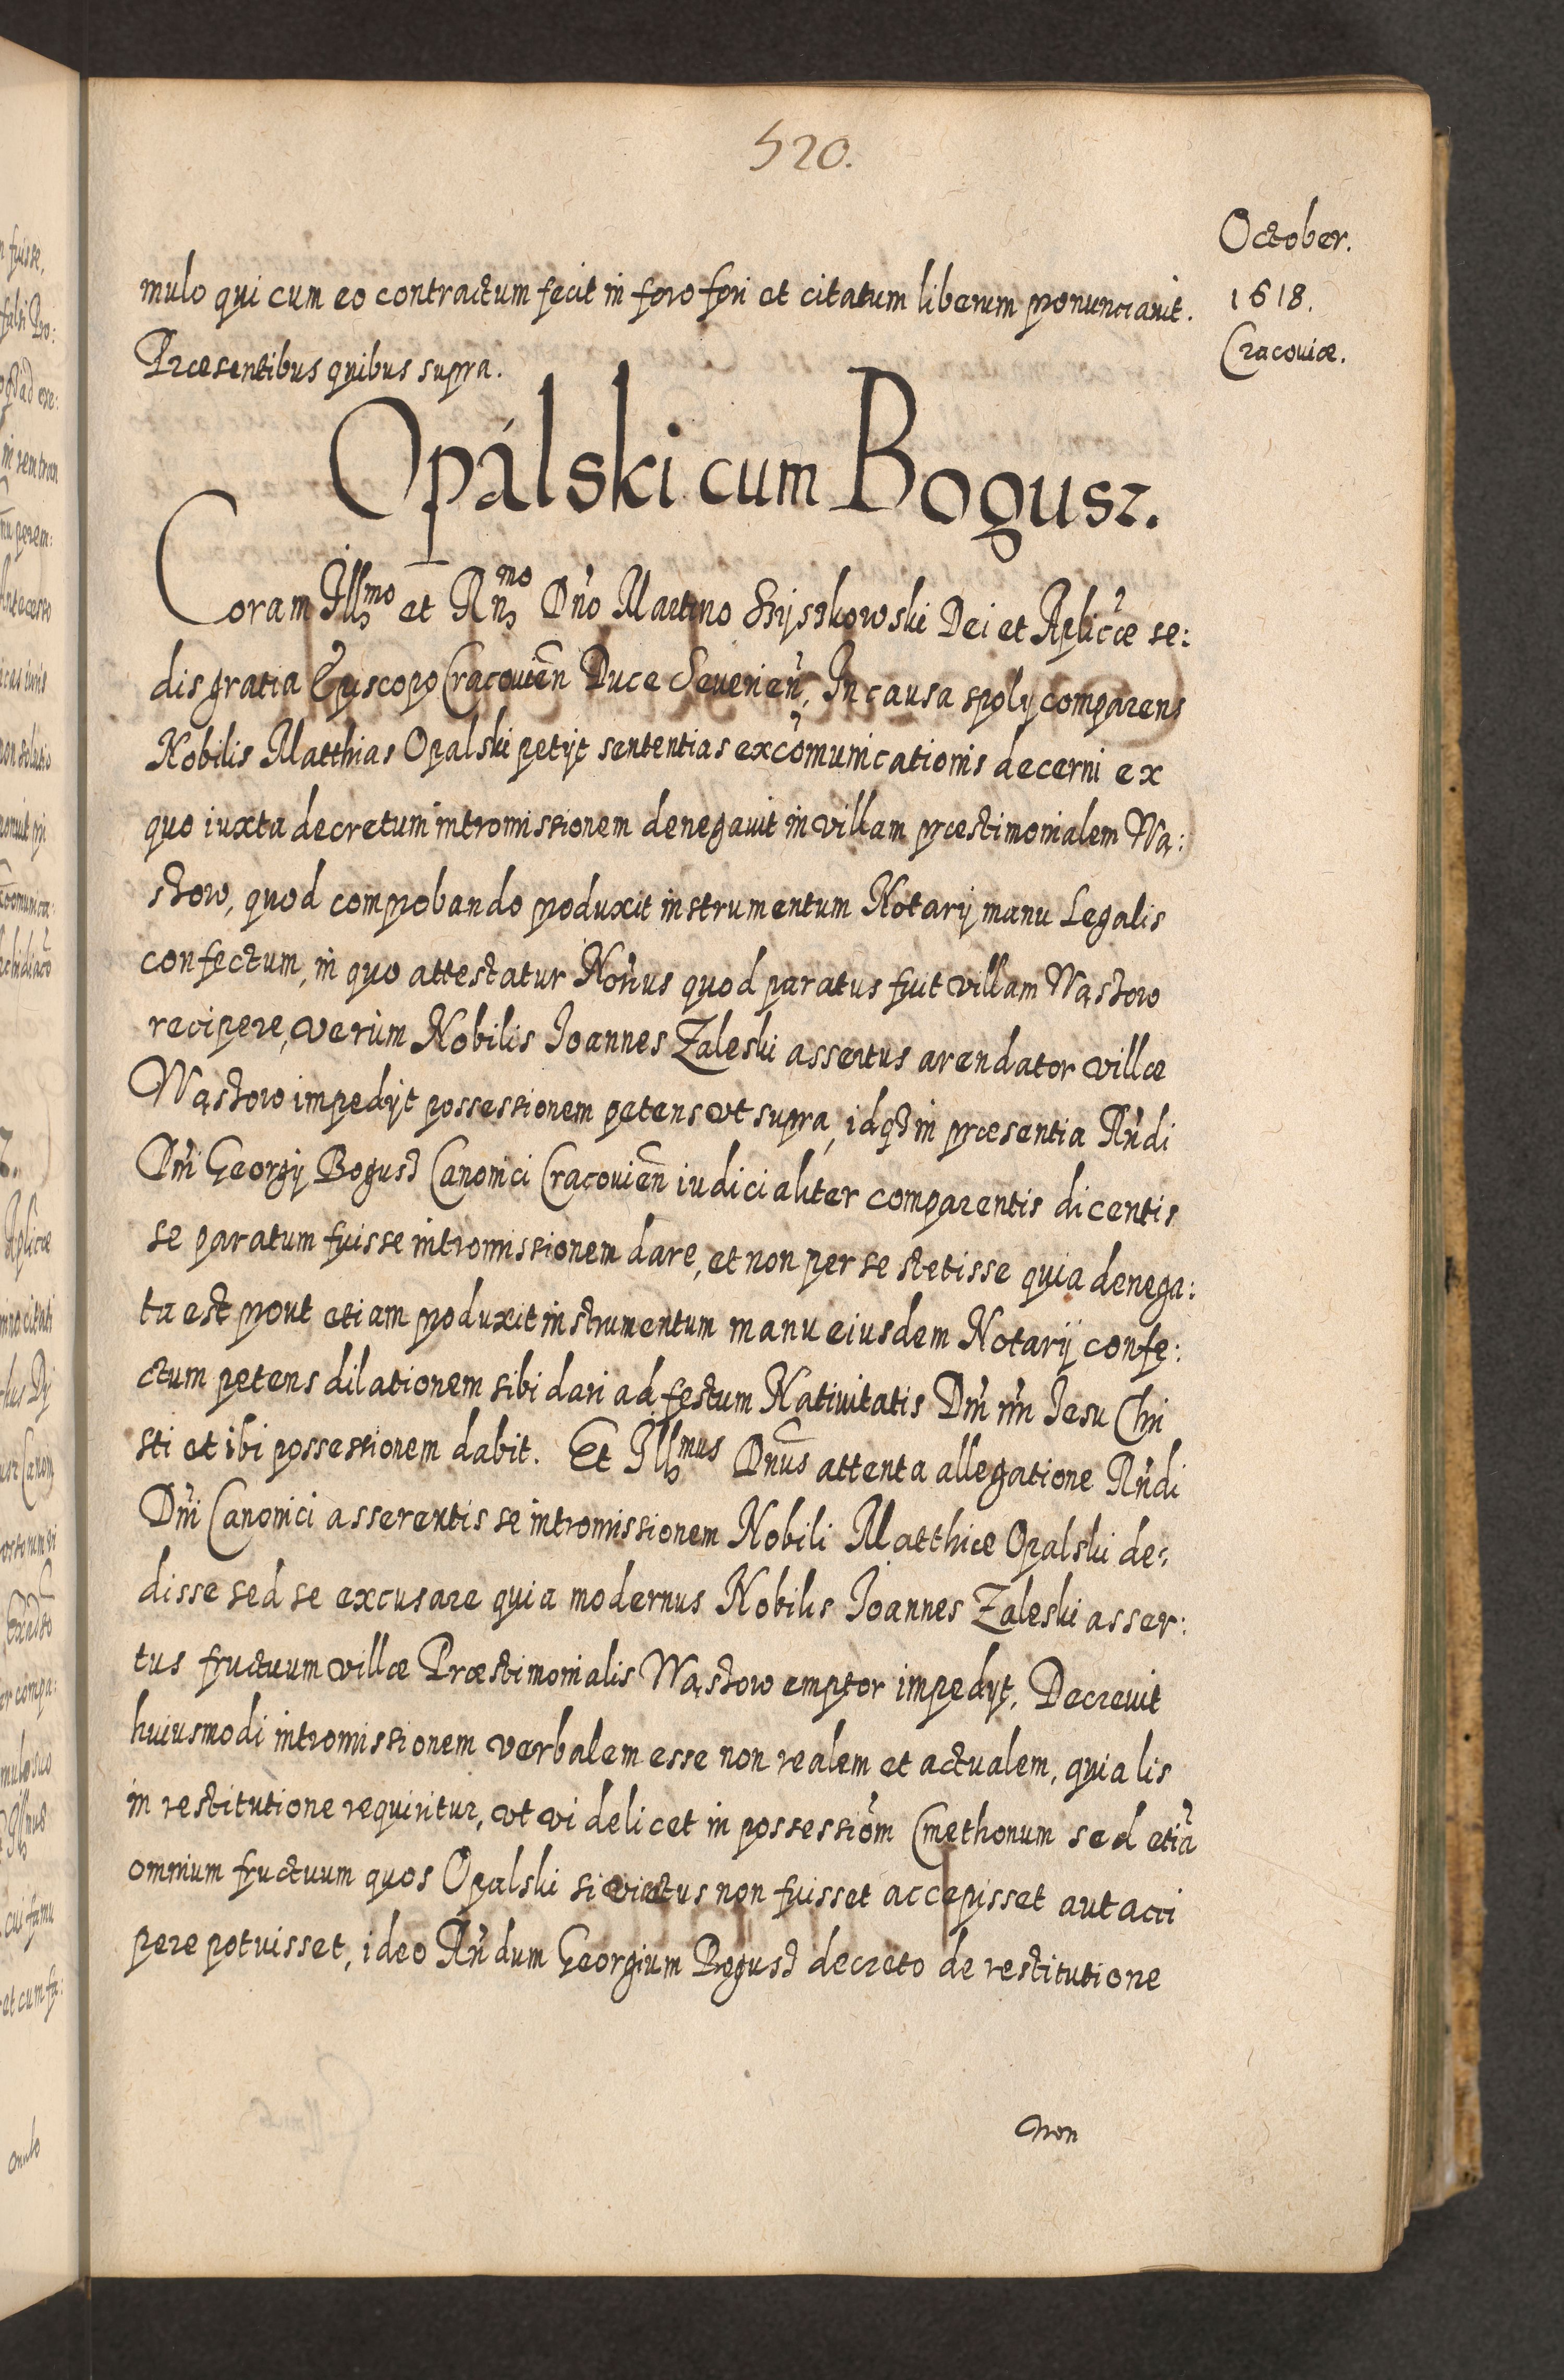 520.
October.
1618.
Cracoviæ.
mulo qui cum eo contractum fecit in foro fori et citatum liberum pronunciavit.
Præsentibus quibus supra.
Opálski cum Bogusz.
Coram Illmo et Rnmo Dño Martino Szyszkowski Dei et Aplicæ se:
dis gratia Episcopo Cracovien̄ Duce Severien̄, In causa spolÿ comparens
Nobilis Matthias Opalski petÿt sententias excõmunicationis decerni ex
quo iuxta decretum intromissionem denegavit in villam præstimonialem Wą:
stow, quod comprobando produxit instrumentum Notarÿ manu Legalis
confectum, in quo attestatur Norius quod paratus fuit villam Wąstow
recipere, verùm Nobilis Joannes Zaleski assertus arendator villæ
Wąstow impedÿt possessionem petens vt supra, idqȝ in præsentia Rñdi
Dñi Georgÿ Bogusz Canonici Cracovien̄ iudicialiter comparentis dicentis
se paratum fuisse intromissionem dare, et non per se stetisse quia denega:
ta est prout etiam produxit instrumentum manu eiusdem Notarÿ confe:
ctum petens dilationem sibi dari ad festum Nativitatis Dñi ñri Jesu Chri
sti et ibi possessionem dabit. Et Illmus Dnus attenta allegatione Rñdi
Dñi Canonici asserentis se intromissionem Nobili Matthiæ Opalski de:
disse sed se excusare quia modernus Nobilis Joannes Zaleski asser:
tus fructuum villæ Præstimonialis Wąstow emptor impedÿt, Decrevit
huiusmodi intromissionem verbalem esse non realem et actualem, qualis
in restitutione requiritur, vt videlicet in possessiom̃ Cmethonum sed etiã
omnium fructuum quos Opalski si eiectus non fuisset accepisset aut acci
pere potuisset, ideo Rñdum Georgium Bogusz decreto de restitutione
non